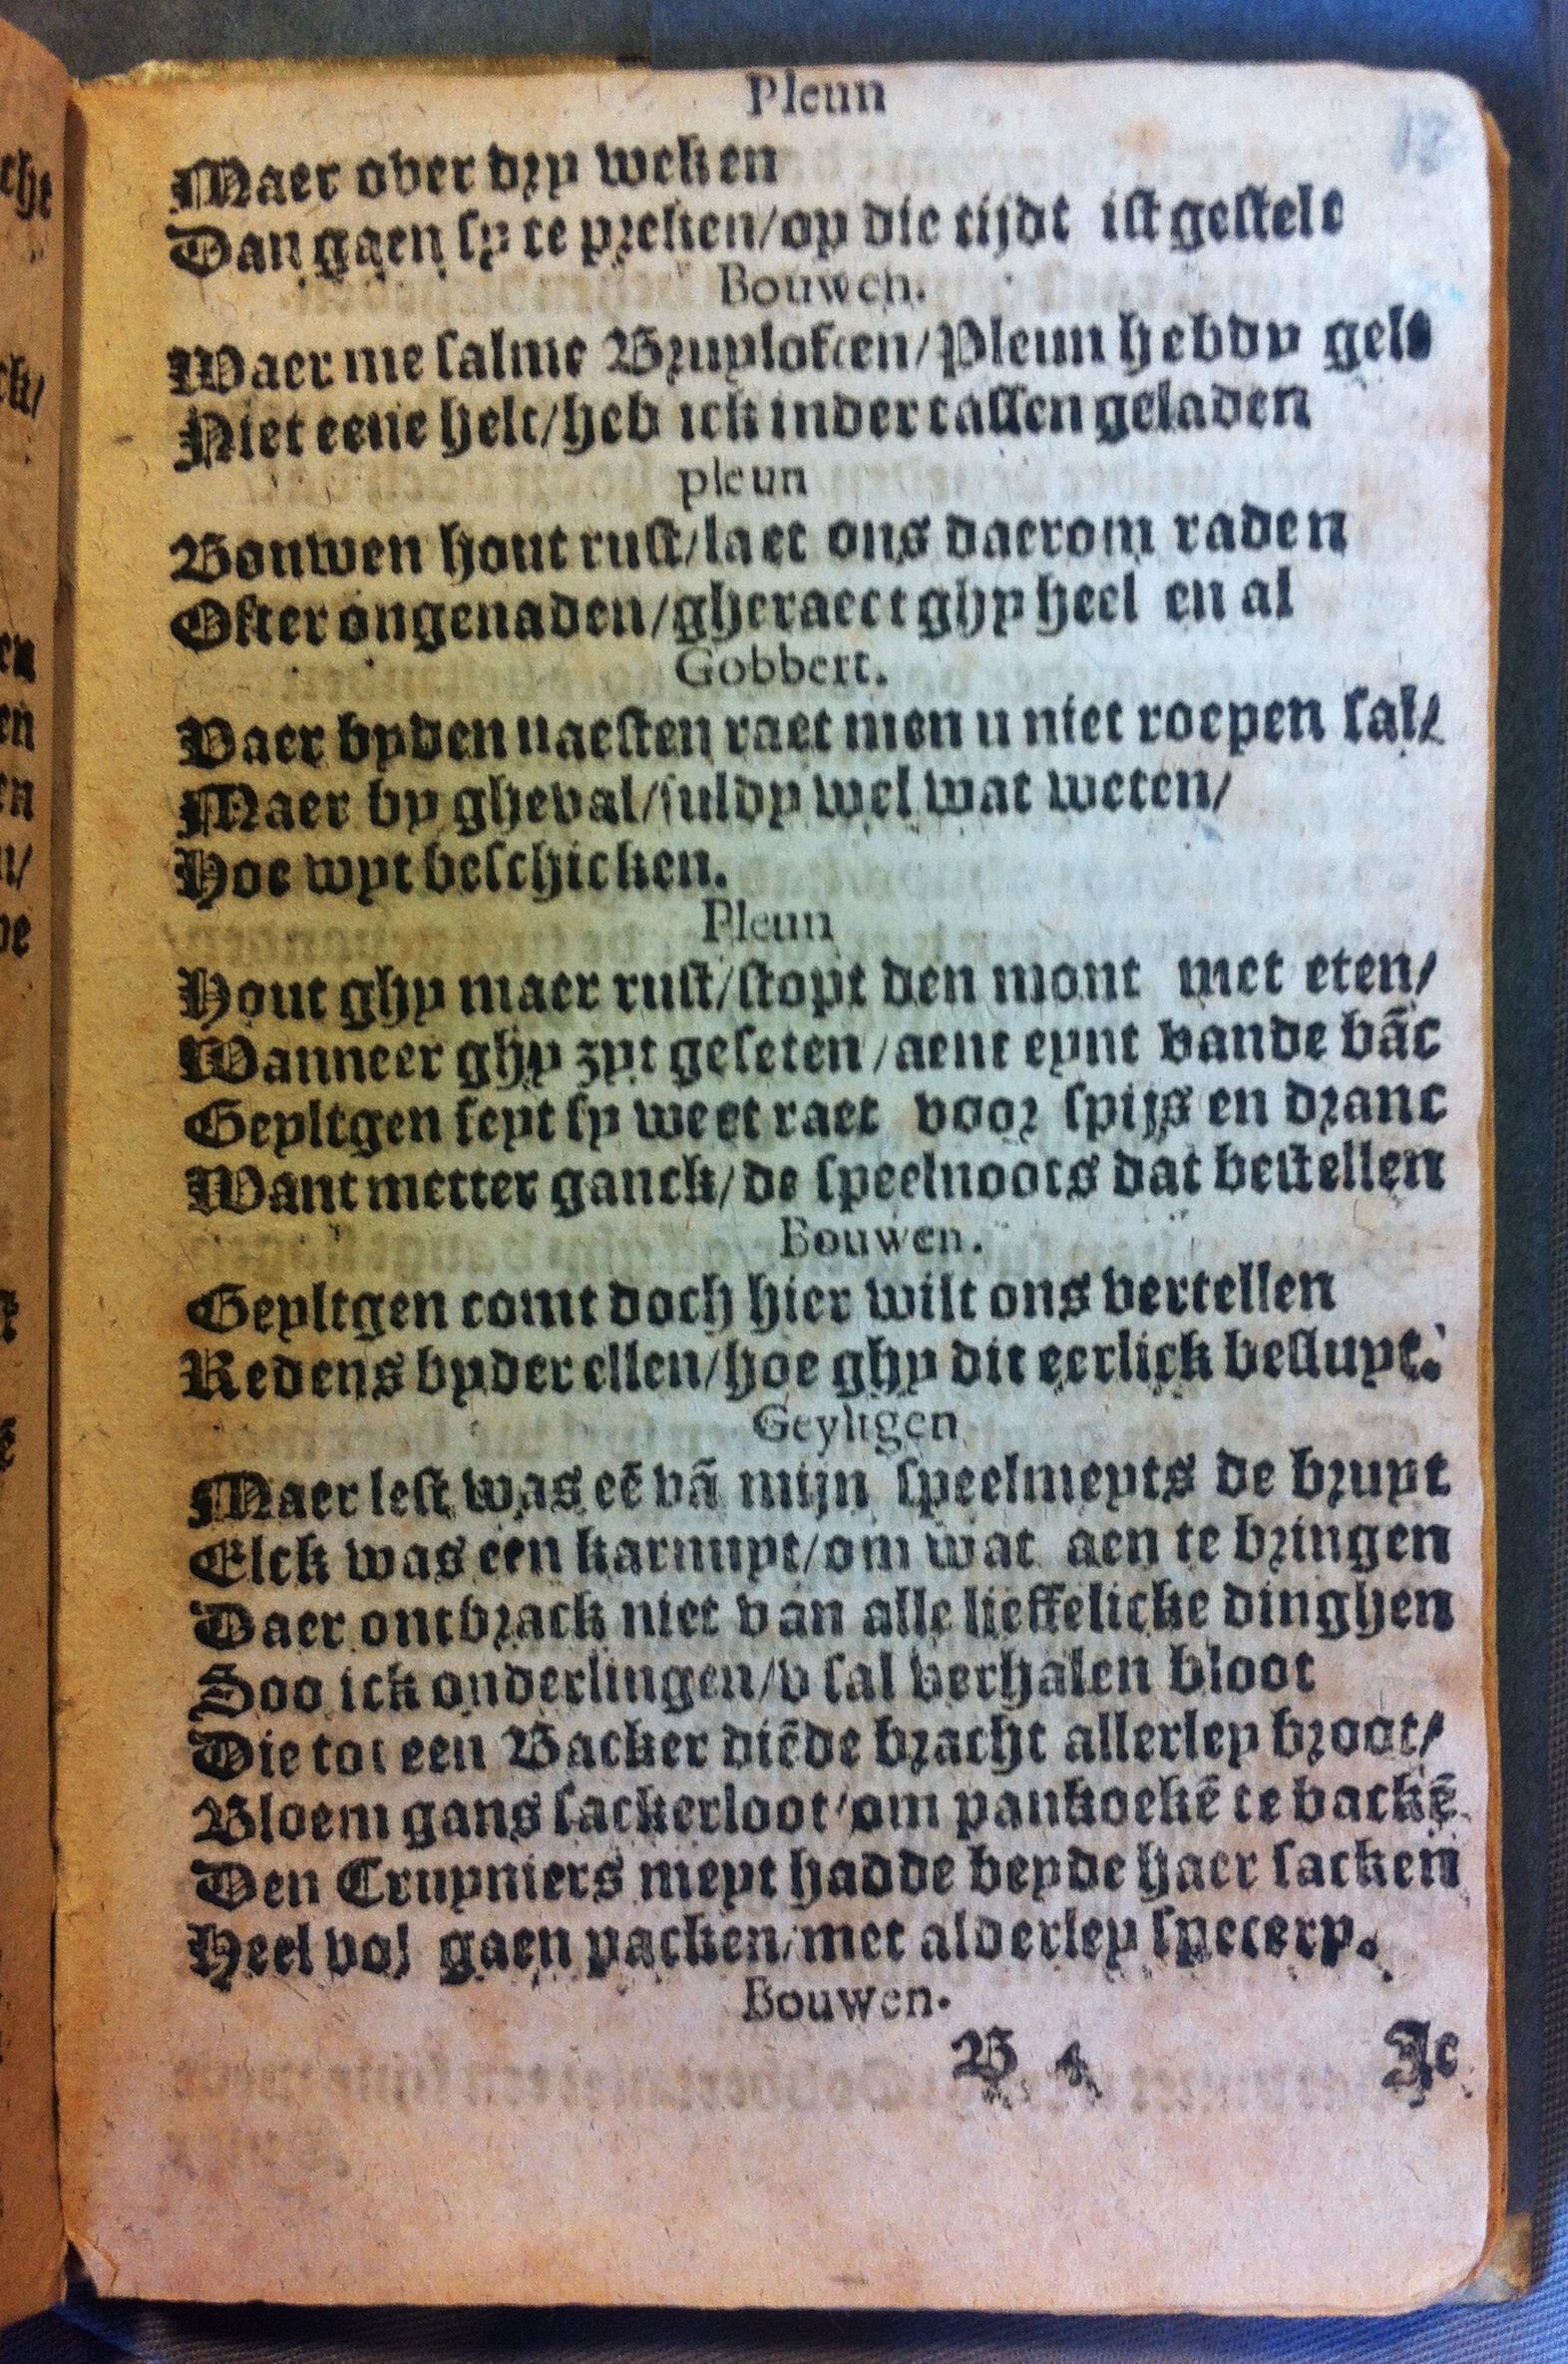 Pleun
Maer over dry weken
Dan gaen sy te preken/op die tijdt ist gestelt
Bouwen.
Waer me salme Bruyloften/Pleun hebdy gelt
Niet eene helt/heb ick inder tassen geladen
pleun
Bouwen hout rust/laet ons daerom raden
Ofter ongenaden/gheraect ghy heel en al
Gobbert.
Vaer byden naesten raet men u niet roepen sal/
Maer by gheval/suldy wel wat weten/
Hoe wyt beschicken.
Pleun
Hout ghy maer rust/stopt den mont met eten/
Wanneer ghy zyt geseten/aent eynt vande bãc
Geyltgen seyt sy weet raet voor spijs en dranc
Want metter ganck/de speelnoots dat bestellen
Bouwen.
Geyltgen comt doch hier wilt ons vertellen
Redens byder ellen/hoe ghy dit eerlick besluyt.
Geyltgen
Maer lest was eẽ vã mijn speelmeyts de bruyt
Elck was een karnuyt/om wat aen te bringen
Daer ontbrack niet van alle lieffelicke dinghen
Soo ick onderlingen/v sal verhalen bloot
Die tot een Backer diẽde bracht allerley broot/
Bloem gans sackerloot/om pankoekẽ te backẽ
Den Cruyniers meyt hadde beyde haer sacken
Heel vol gaen packen/met alderley specery.
Bouwen.
B 4 Ic